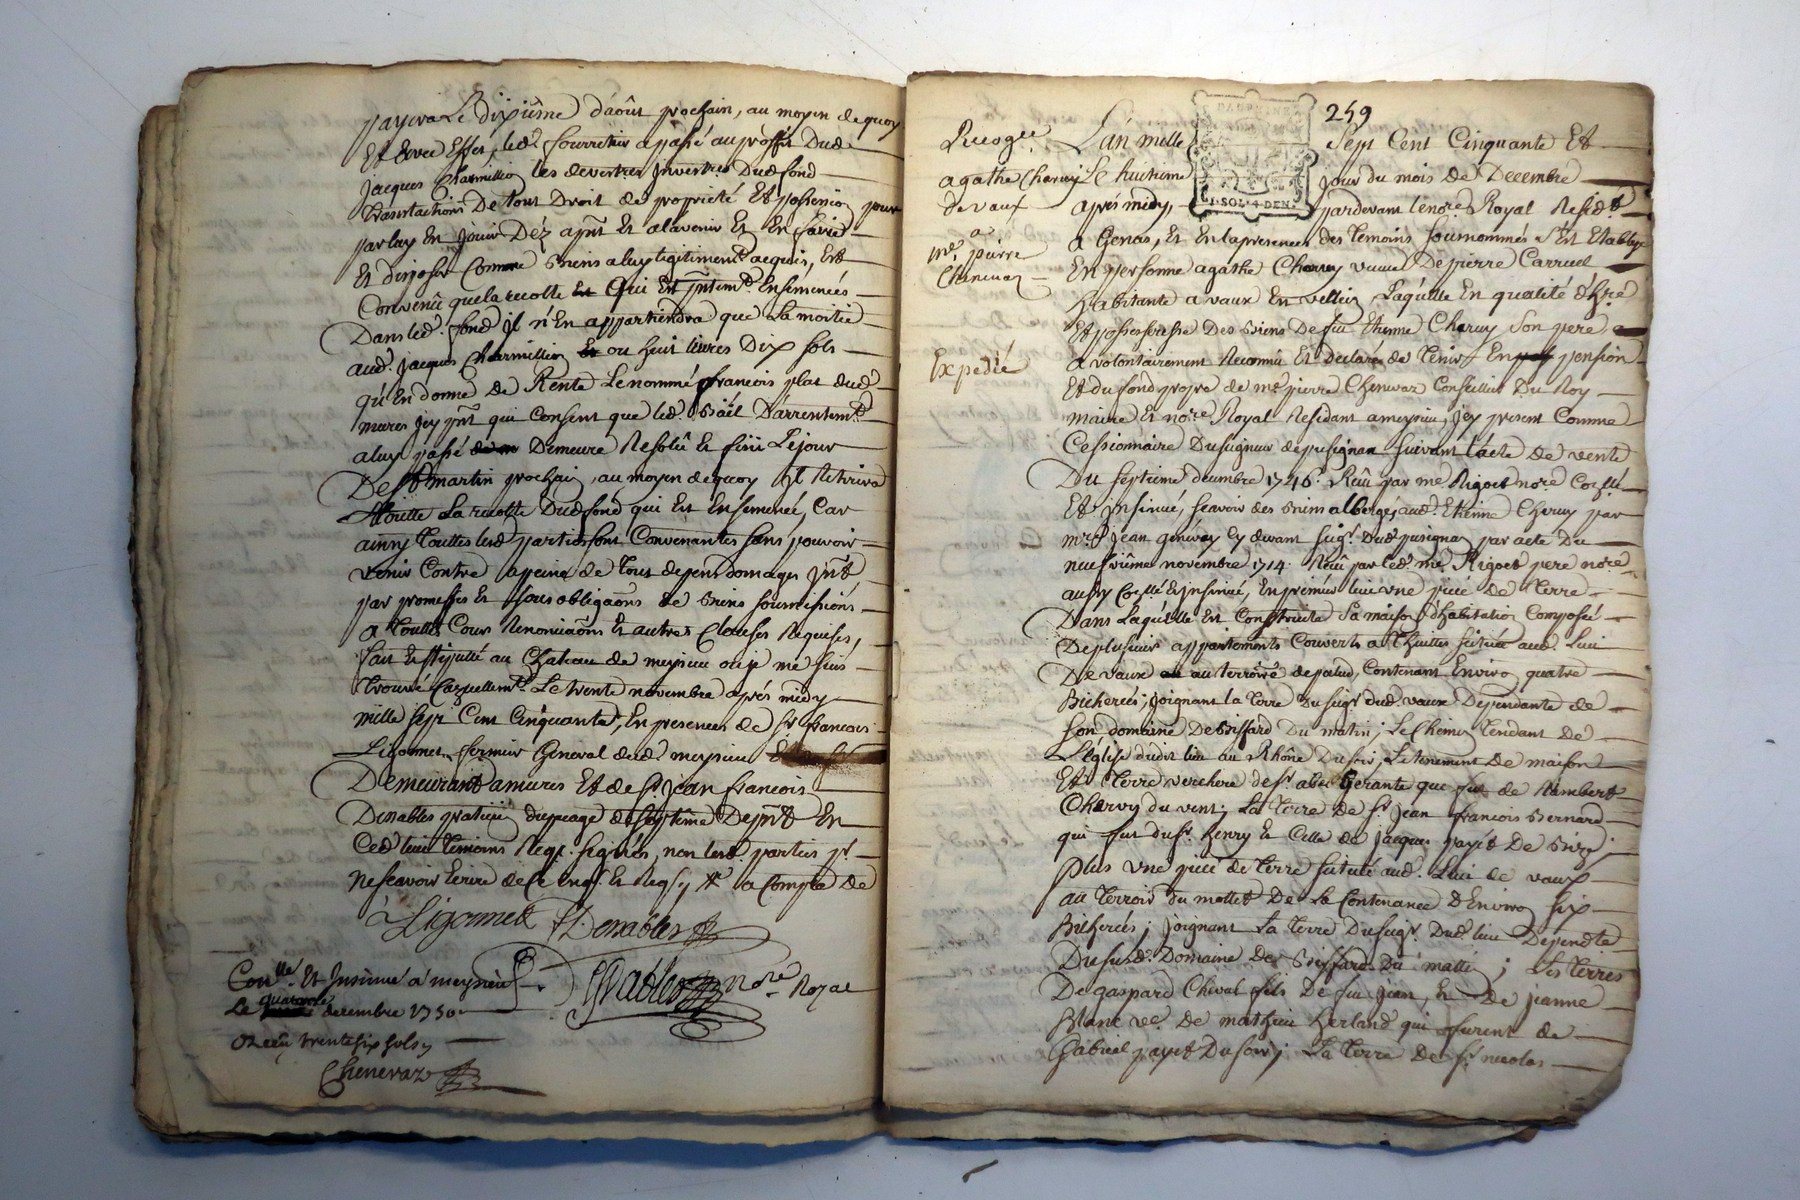 payera Le dixiême d'août prochain, au moyen de quoy
Et avec Effet, led. fourretier a passé au proffit Dud.
jacques Charmillion les devestir Investir Dudfond
translation De tout Droit de proprieté Et possession pour
par luy En jouir Déz apnt Et al'avenir Et En faire
Et disposer Comme Biens a luy legitiment acquis, Est
Convenû que la recolte Qui Est pntemt. Enseméncés
Dans led. fond jl n'En appartiendra que La moitié
aud. jacques Charmillion ou huit livres Dix sols
qu'En donne de Rente Le nommé francois plat dud.
mures jcy pnt qui Consent que led. Bâil D'arrentemt.
a luy passé Demeure Resolû Et fini Le jour
De St martin prochain, au moyen dequoy jl Retirera
toutte La recolte Dudfond qui Est Ensemencé, Car
ainsy Touttes lesd. parties sont Convenantes sans pouvoir
venir Contre a peine de tous depens domages Jnt
par promesses Et sous obligaôns de Biens soumissions
a toutes Cours Renonciaôns Et autres Clauses Requises,
fait Et stipullé au Chateau de meysieu où je me suis
trouvé Cazuellemt. Le trente novembre aprés midy
mille sept Cent Cinquante, En presence de sr. francois
Ligonnet fermier General dud. meysieu
Demeurant a mures Et de sr. jean francois
Desnables pratitien du peage de septême De pnt En
Ced. lieu temoins Req. signés, non lesd. parties pr.
ne scavoir Ecrire de Ce Enq. Et Req.
Ligonnet Desnables
Conllé. Et Insinué à meysieu
Le quatorze decembre 1750
Reçu trente six sols
Chenevaz
Nore. Royal
259
Recogce.
agathe Charvy
de vaux
a
me. pierre
Chenevaz
Expedié
L'an mille Sept Cent Cinquante Et
Le huitieme jour du mois de Decembre
aprés midy, pardevant le nore. Royal Residt.
a Genas, Et En la presence des temoins sousnommés S'est Etablye
En personne agathe Charvy veuve De pierre Carruel
habitante a vaux En vellein, Laquelle En qualité d'hre.
Et possesseresse Des Biens De feu Etienne Charvy Son pere
a volontairement Reconnû Et declaré de tenir En pension
Et du fond propre de me pierre Chenevaz Conseiller Du Roy
maire Et nore. Royal Residant a meysieu, jcy present Comme
Cessionnaire Du seigneur de pusignan suivant l'acte de vente
Du septieme decembre 1746. Reçu par me Rigoet nore. Conllé.
Et insinué, scavoir des Biens albergés aud. Etienne Charvy par
mre. jean genevey Cy devant seigr. Dud. pusignan par acte Du
neufvième novembre 1714. Reçu par led. me. Rigoet pere nore.
aussy Conllé. Et jnsinué, En premier lieu vne piece de terre
Dans Laquelle Est Construite Sa maison d'habitation Composée
De plusieurs appartements Couverts a thuiles Située aud. Lieu
De vaux au terroire de palud, Contenant Environ quatre
Bicherées; joignant la terre du seigr. dud. vaux Dependante de
Son domaine De Boiffard Du matin; Le Chemin tendant de
L'église dudit lieu au Rhône Du soir; Le tenement de maison
Et terre verchere de sr. abel Gerante que fut de Rambert
Charvy du vent; La terre de sr. jean francois Bernard
qui fut du sr. Henry Et Celle de jacques payet De Bize;
Plus vne piece de terre Située aud. Lieu de vaux
au terroir du mollet De La Contenance D'Environ six
Bicherées; joignant La terre Du seigr. Dud. lieu Dependte.
Du susd. Domaine De Boiffard Du matin; Les terres
De gaspard Chival fils De feu jean, Et De jeanne
Blanc ve. de mathieu Herland qui furent de
Gabriel payet Du soir; La terre De sr. nicolas